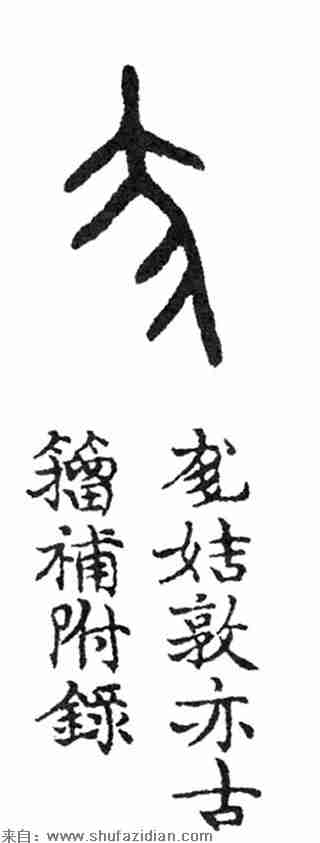 姞敦亦古
籀補附錄
来自：www.shufazidian.com